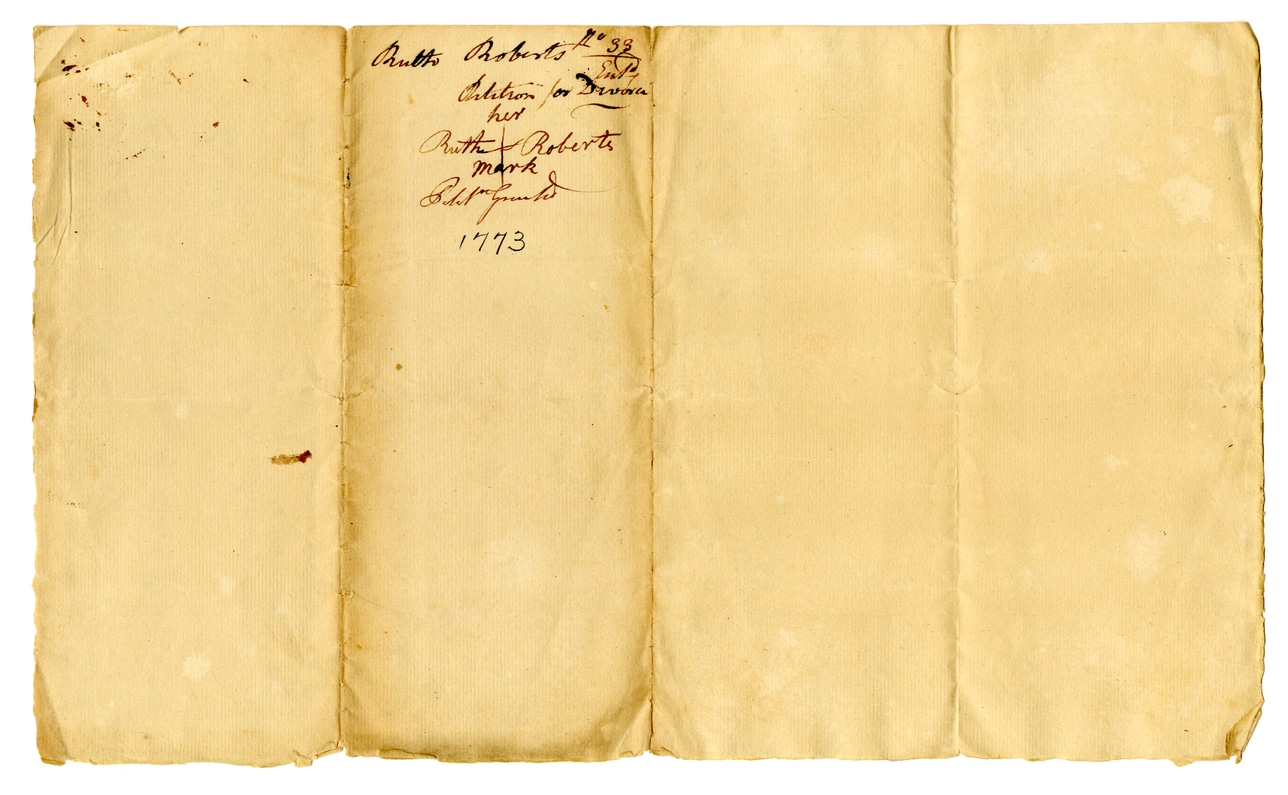 Ruth Roberts No 33
Entd
Petition for Divorce
her
Ruth Roberts
mark
Petn Granted
1773